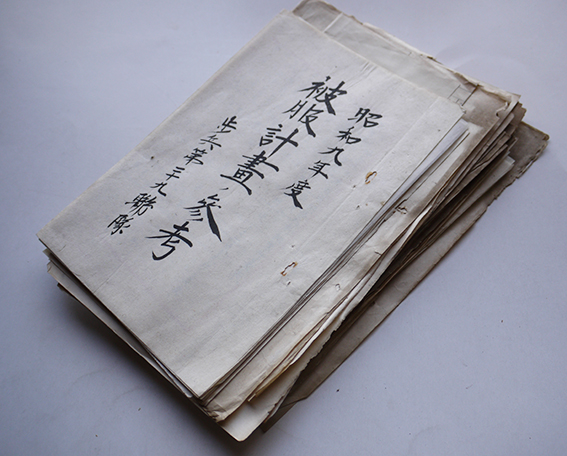 昭和九年度
被服計畫ノ參考
步兵第二十九聯隊